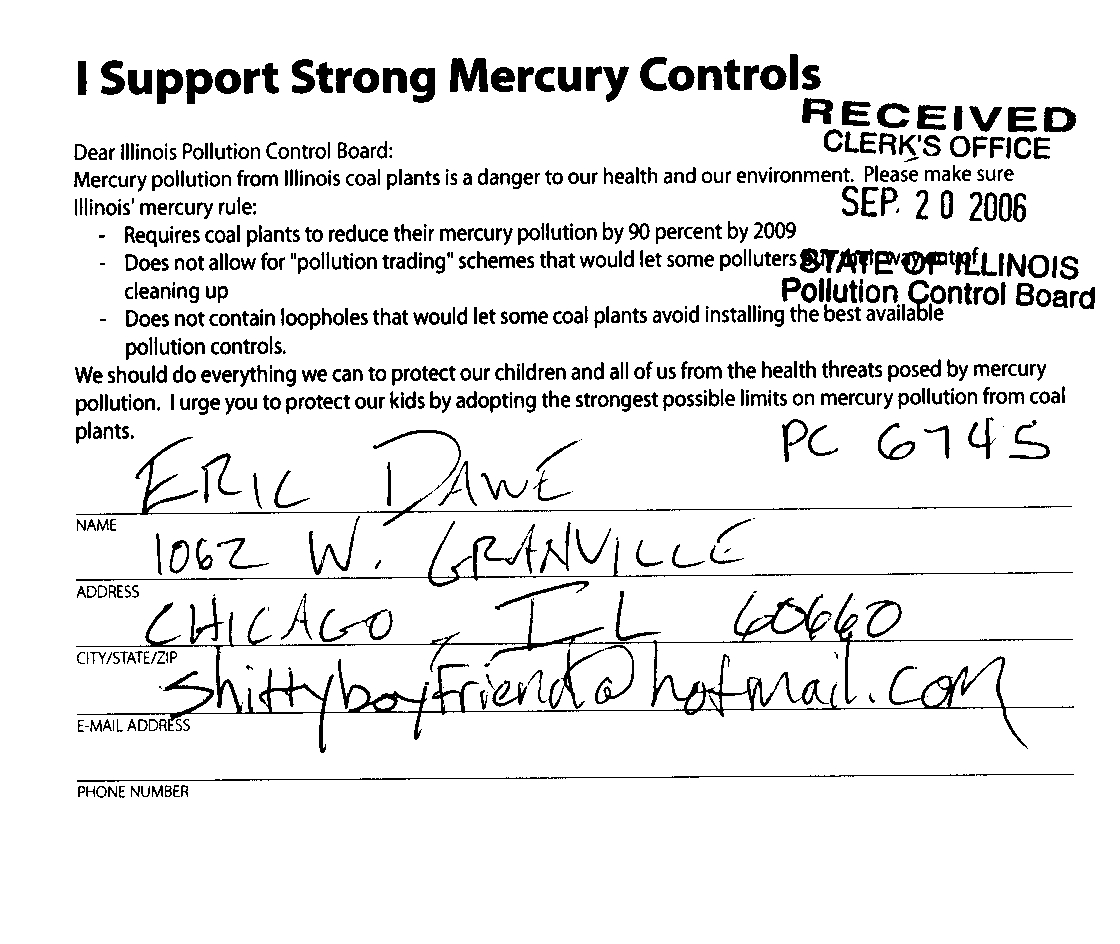 I Support Strong Mercury Controls
RECEIVED
CLERK'S OFFICE
Dear Illinois Pollution Control Board:
Mercury pollution from Illinois coal plants is a danger to our health and our environment. Please make sure
Illinois' mercury rule:
SEP. 20 2006
- Requires coal plants to reduce their mercury pollution by 90 percent by 2009
- Does not allow for "pollution trading" schemes that would let some polluters
STATE OF ILLINOIS
cleaning up
Pollution Control Board
- Does not contain loopholes that would let some coal plants avoid installing the best available
pollution controls.
We should do everything we can to protect our children and all of us from the health threats posed by mercury
pollution. I urge you to protect our kids by adopting the strongest possible limits on mercury pollution from coal
plants.
PC 6745
ERIC DAWE
NAME
1062 W. GRANVILLE
ADDRESS
CHICAGO, IL 60660
CITY/STATE/ZIP
shittyboyfriend@hotmail.com
E-MAIL ADDRESS
PHONE NUMBER